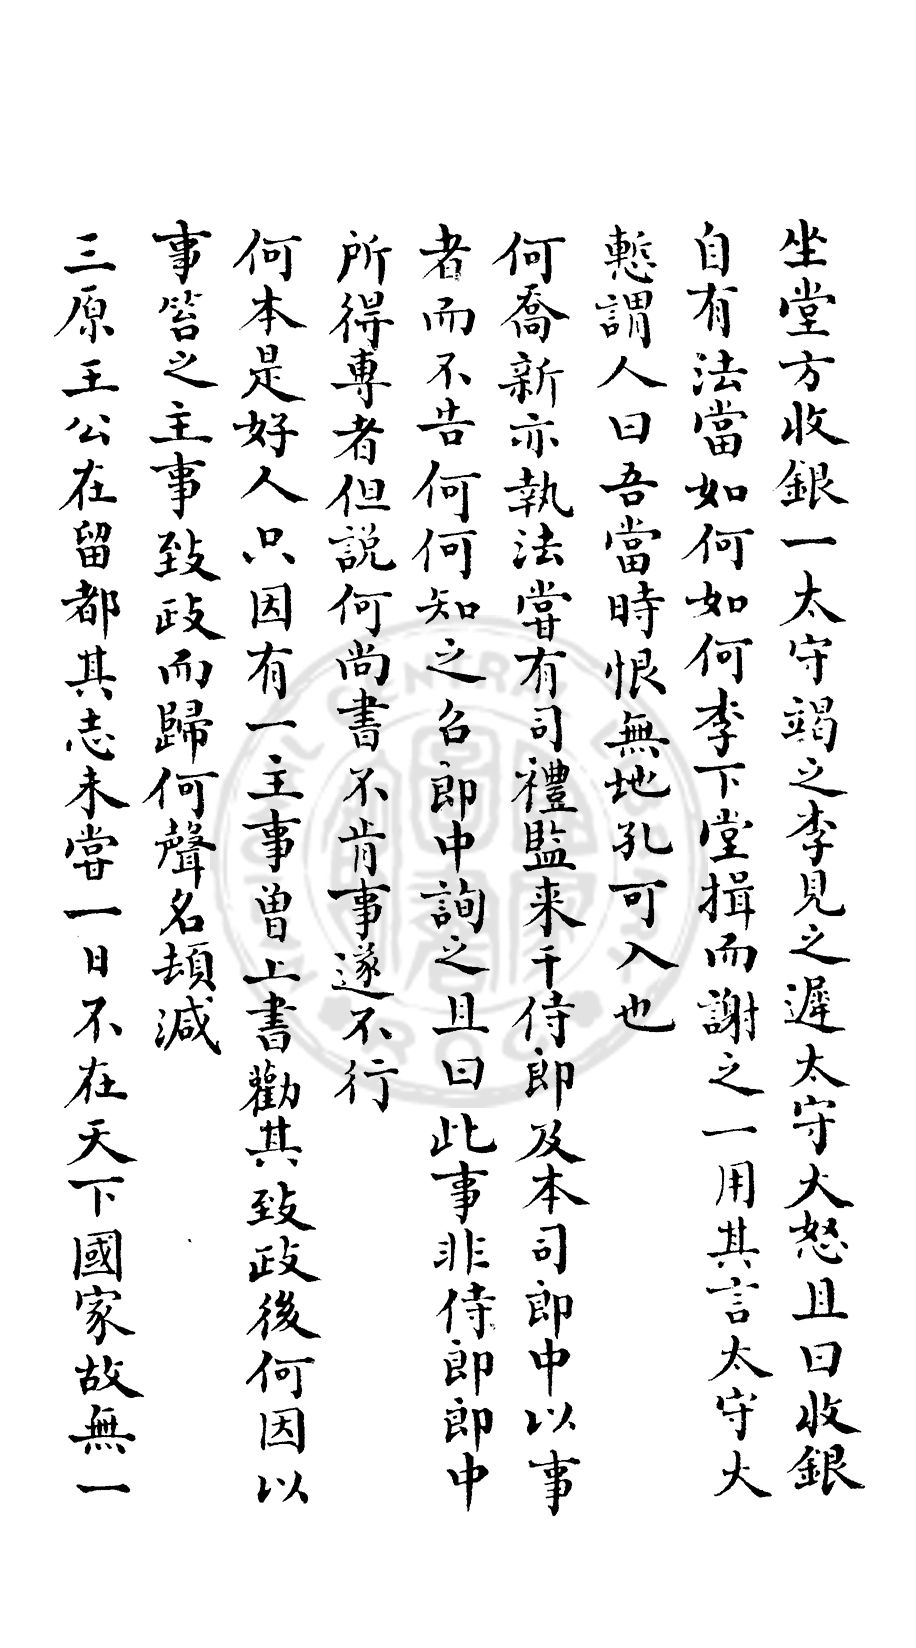 坐堂方收銀一太守謁之李見之遲太守大怒且曰收銀
自有法當如何如何李下堂揖而謝之一用其言太守大
慙謂人曰吾當時恨無地孔可入也
何喬新亦執法嘗有司禮監来干侍郎及本司郎中以事
者而不告何何知之名郎中詢之且曰此事非侍郎郎中
所得專者但說何尚書不肯事遂不行
何本是好人只因有一主事曾上書勸其致政後何因以
事笞之主事致政而歸何聲名頓減
三原王公在留都其志未嘗一日不在天下國家故無一
CENTRAL
ROC